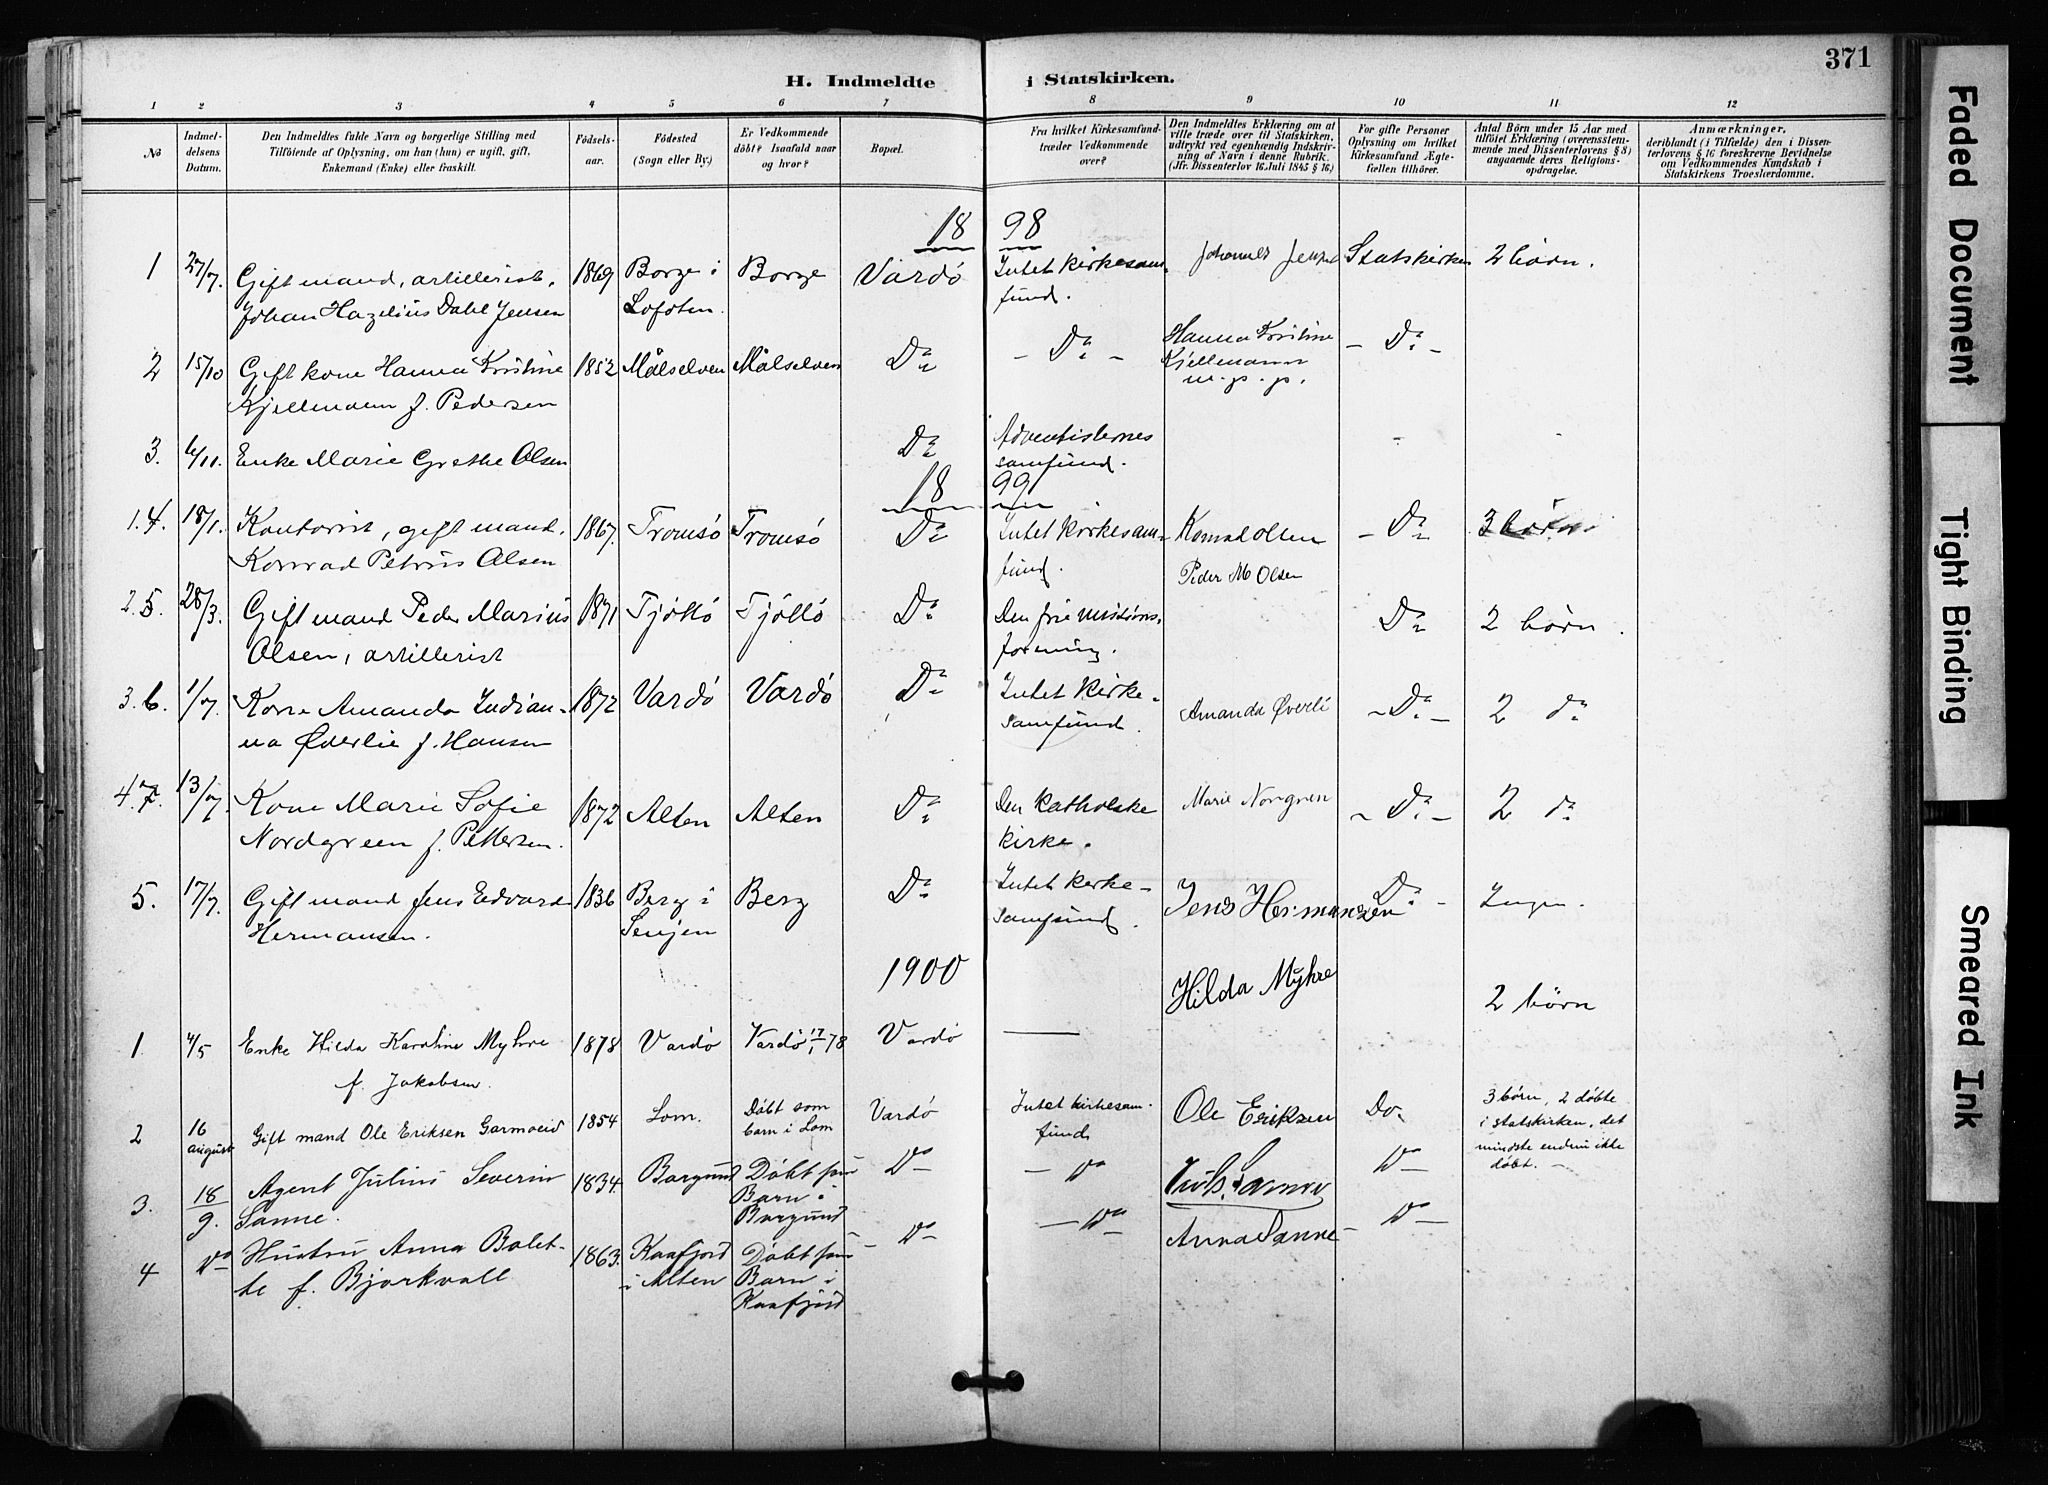 371
H. Indmeldte i Statskirken.
1 2 3 4 5 6 7 8 9 10 11 12
No
Indmel-
delsens
Datum.
Den Indmeldtes fulde Navn og borgerlige Stilling med
Tilföiende af Oplysning, om han (hun) er ugift, gift,
Enkemand (Enke) eller fraskilt.
Födsels-
aar.
Födested
(Sogn eller By.)
Er Vedkommende
döbt? Isaafald naar
og hvor?
Bopæl.
Fra hvilket Kirkesamfund
træder Vedkommende
over?
Den Indmeldtes Erklæring om at
ville træde over til Statskirken,
udtrykt ved egenhændig Indskriv-
ning af Navn i denne Rubrik.
(Jfr. Dissenterlov 16 Juli 1845 § 16.)
For gifte Personer
Oplysning om hvilket
Kirkesamfund Ægte-
fællen tilhörer.
Antal Börn under 15 Aar med
tilföiet Erklæring (overensstem-
mende med Dissenterlovens § 8)
angaaende deres Religions-
opdragelse.
Anmærkninger,
deriblandt (i Tilfælde) den i Dissen-
terlovens § 16 foreskrevne Bevidnelse
om Vedkommendes Kundskab i
Statskirkens Troeslærdomme.
18 98
1 27/7. Gift mand, artillerist, 1869 Borge i Borge Vardö Intet kirkesam- Johannes Jensen Statskirken 2 börn.
Johan Hazelius Dahl Jensen Lofoten. fund.
2 15/10 Gift kone Hanna Kristine 1852 Målselven Målselven Do - Do - Hanna Kristine - Do -
Kjellmann f. Pedersen Kjellmann
m. p. p.
3. 6/11. Enke Marie Grethe Olsen Do Adventisternes - -
samfund.
18 99
1. 4. 18/1. Kontorist, gift mand, 1867. Tromsö Tromsö Do Intet kirkesam- Konrad Olsen - Do 3 börn
Konrad Petrus Olsen fund.
Peder M Olsen
2. 5. 28/3. Gift mand Peder Marius 1871 Tjöttö Tjöttö Do Den frie missions- Do 2 börn.
Olsen, artillerist forening.
3. 6. 1/7. Kone Amanda Indian- 1872 Vardö Vardö Do Intet kirke- Amanda Överli - Do - 2 do
na Øverlie f. Hansen samfund.
4. 7. 13/7. Kone Marie Sofie 1872 Alten Alten Do Den katholske Marie Norgren - Do - 2 do
Nordgreen f. Pettersen. kirke.
5. 17/7. Gift mand Jens Edvard 1836 Berg i Berg Do Intet kirke- Jens Hermansen Do - Ingen.
Hermansen. Senjen samfund.
1900
Hilda Myhre 2 börn
1. 4/5 Enke Hilda Karoline Myhre 1878 Vardö Vardö 17/1 78 Vardö
f. Jakobsen.
2 16 august Gift mand Ole Eriksen Garmoeid 1854 Lom. Döbt som barn i Lom Vardö Intet kirkesam- fund Ole Eriksen Do 3 börn, 2 döbte
i statskirken, det
mindste endnu ikke
döbt. -
3. 18/9. Agent Julius Severin 1834. Borgund Döbt som Do - Do Do -
Sanne. Barn i
Borgund
4 Do Hustru Anna Bolet- 1863. Kaafjord Döbt som Do - Do Anna Sanne Do -
te f. Bjorkvall i Alten Barn i
Kaafjord
Faded Document
Tight Binding
Smeared Ink